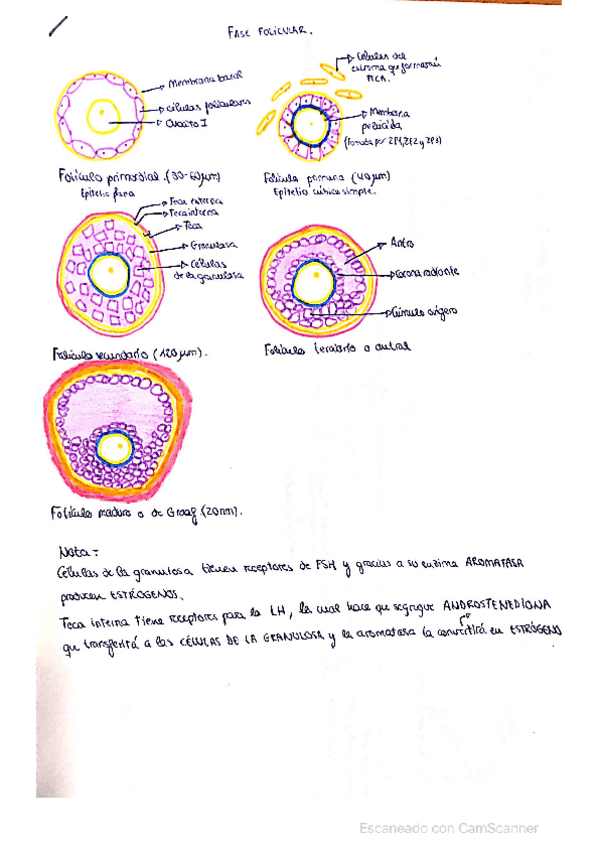 FASE FOLICULAR.
Membrana basal
células foliculares
Ovocito I
Células del
estroma que formarán
TECA.
Membrana
pelúcida
(Formada por ZP1, ZP2 y ZP3)
Folículo primordial. (30-60μm)
Epitelio plano
Folículo primario (40μm)
Epitelio cúbico simple.
Teca externa
Teca interna
Teca
Granulosa
Células
de la granulosa
Antro
Corona radiante
Cúmulo ovígero
Folículo secundario (120μm).
Folículo terciario o antral
Folículo maduro o de Graaf (20nm).
Nota:
Células de la granulosa tienen receptores de FSH y gracias a su enzima AROMATASA
producen ESTRÓGENOS.
Teca interna tiene receptores para la LH, la cual hace que segregue ANDROSTENEDIONA
que transferirá a las CÉLULAS DE LA GRANULOSA y la aromatasa la convertirá en ESTRÓGENO
Escaneado con CamScanner